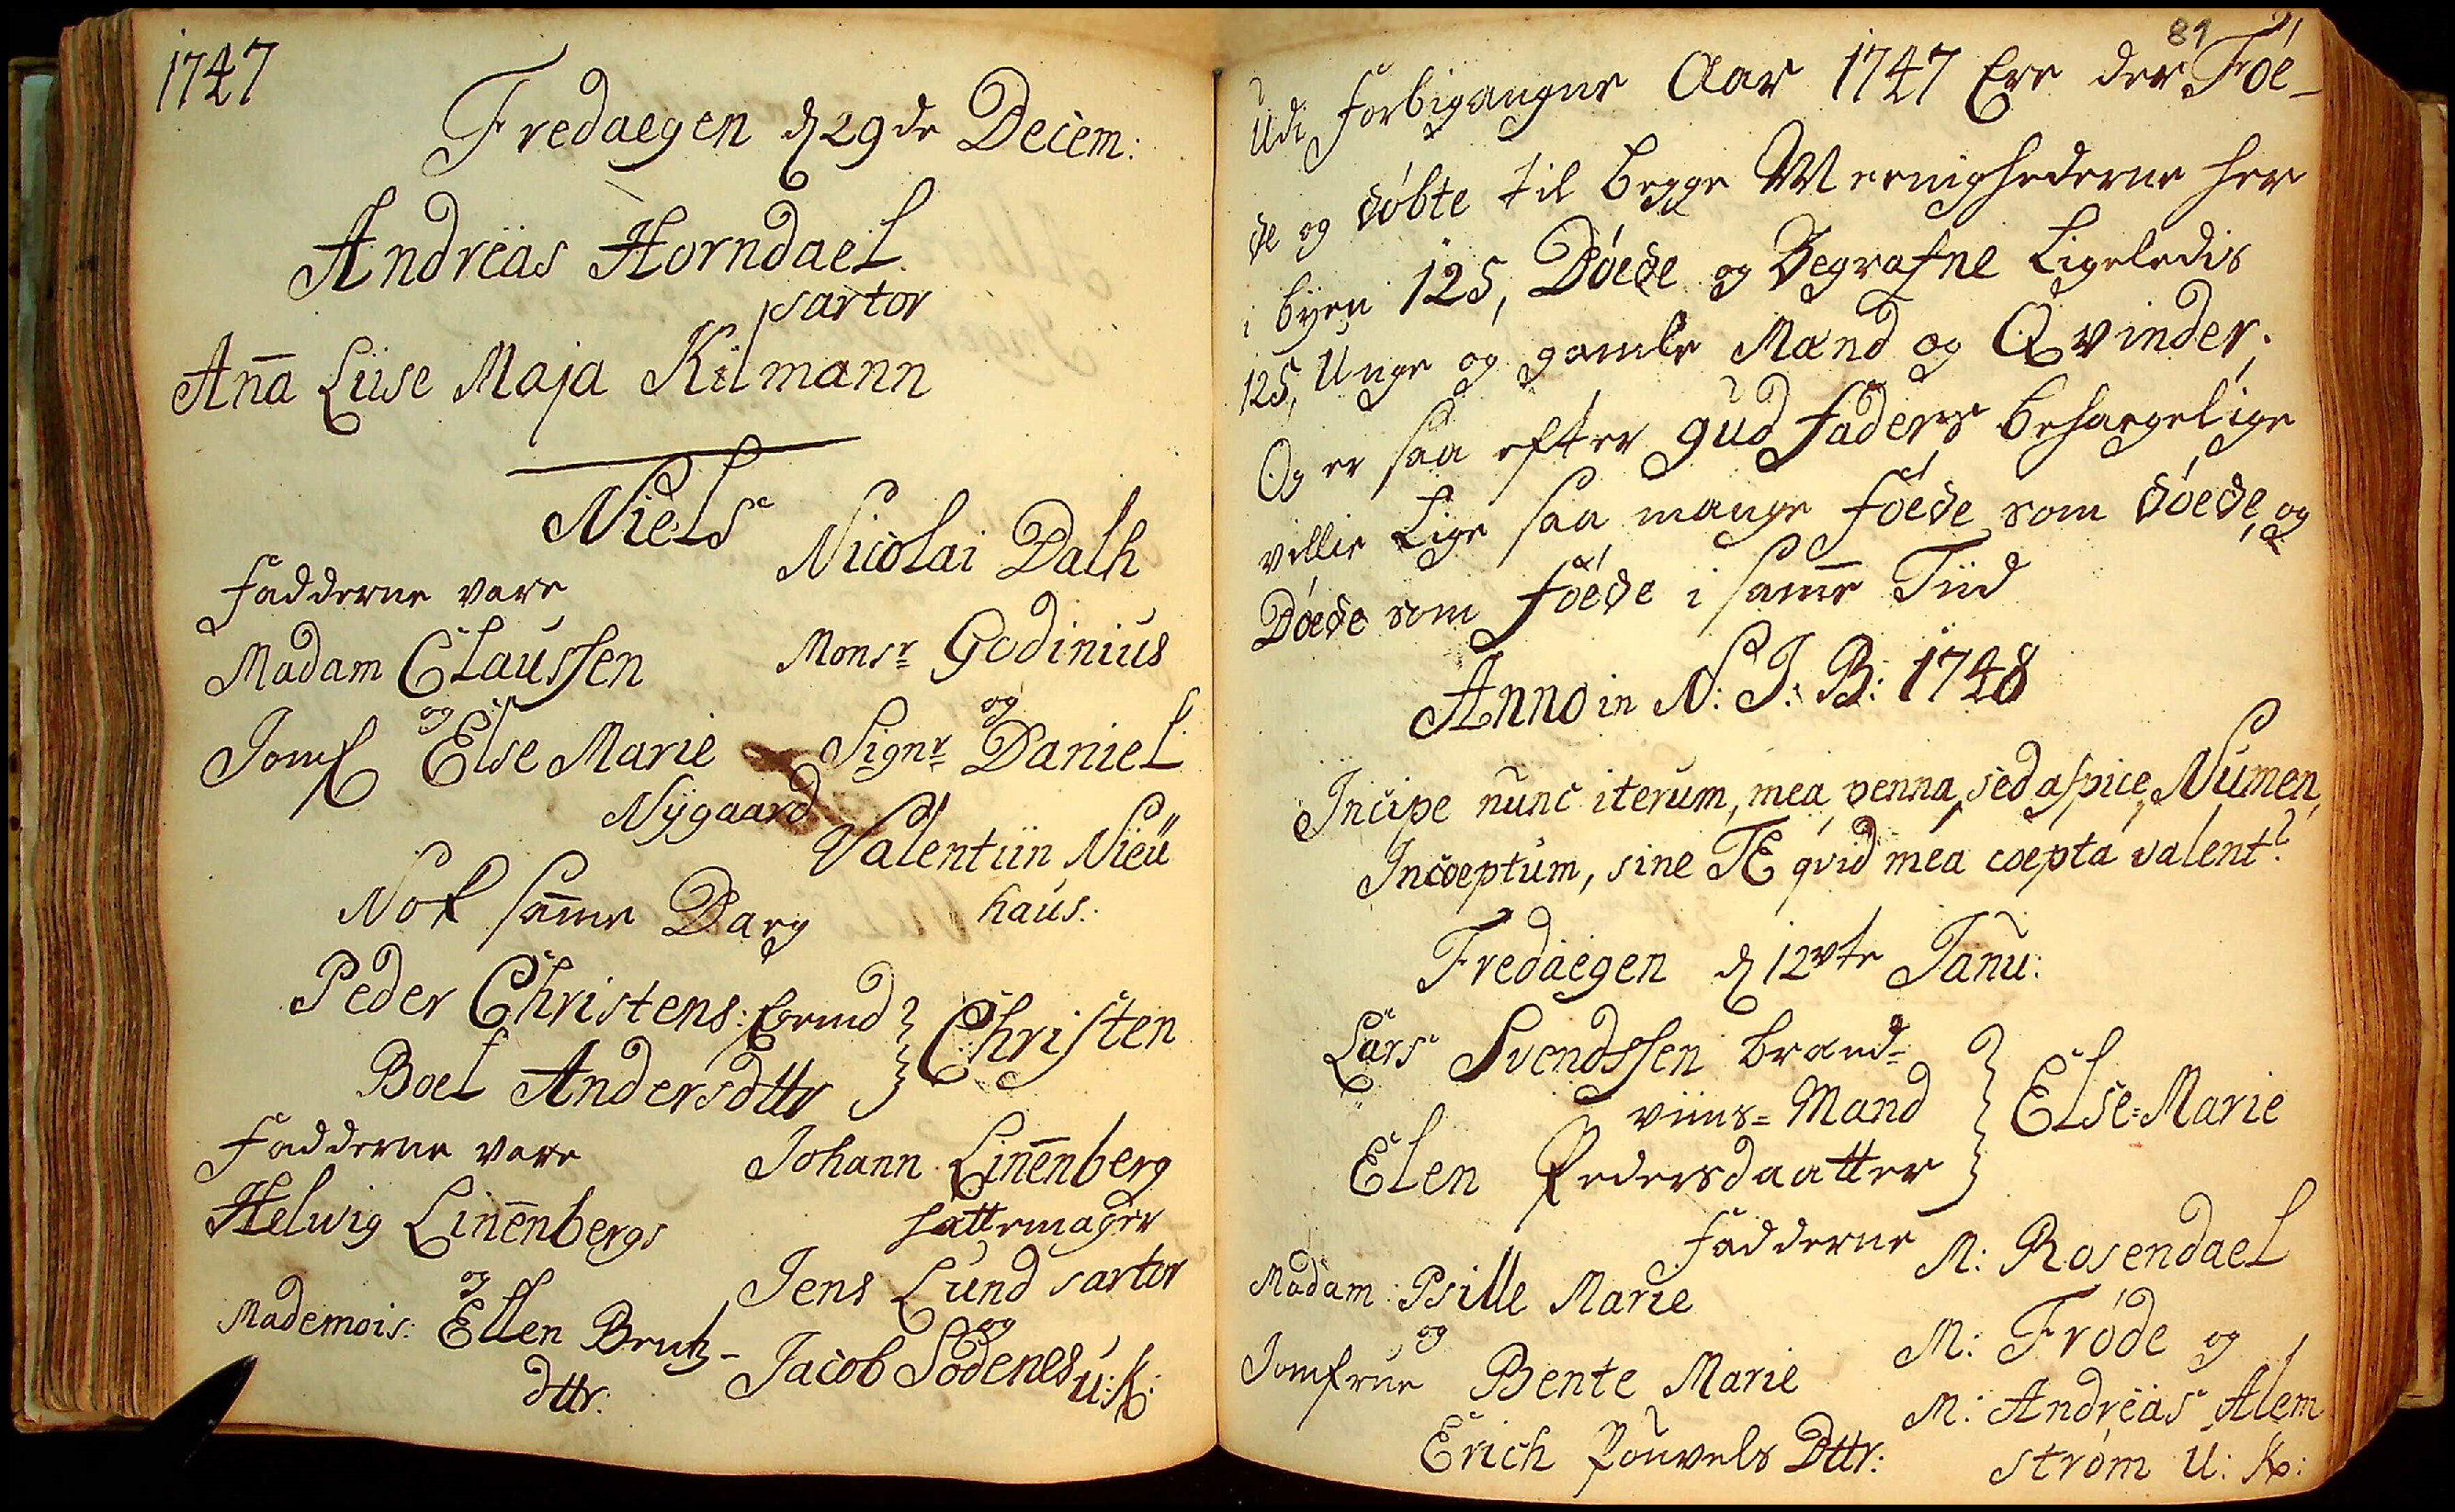 1747
Fredaegen d 29de Decem:
Andreas Horndael
sartor
Anna Liise Maja Kilmann
Niels
Fadderne vare
Nicolai Dalh
Madam Claussen
Monsr Godinius
og
og
Jomf Else Marie
Signr Daniel
Nÿgaard
Valentiin Nieü
haus.
Nok samme Daeg
Peder Christens:
Christen
Boel Andersdttr
Fadderne vare
Johann Linenberg
hattemager
Helwig Linenbergs
og
Jens Lund sartor
og
Mademois: Ellen
dttr.
Jacob Sødenes u: k:
89
Udi forbigangne Aar 1747 Ere der Føe-
de og døbte til begge Meenighederne her
i byen 125, Døede og Begrafne Ligeledis
125, Unge og gamle Mænd og Qvinder;
Og er saa efter gud faders behaegelige
villie Lige saa mange føede som døede, og
Døede som føede i samme Tiid
Anno in N: J: B: 1748
Incipe nunc iterum, mea penna, sed aspice, Numen,
Incoeptum, sine TE qvid mea coepta valent?
Fredaegen d 12vte Janu:
Lars Svendssen brænd-
viins= Mand
Else=Marie
Elen Pedersdaatter
Fadderne
Madam Psille Marie
M: Rosendael
og
M: Frøde og
Jomfrue Bente Marie
M: Andreas Alem
Erich Pouvels Dttr:
strøm u: k: